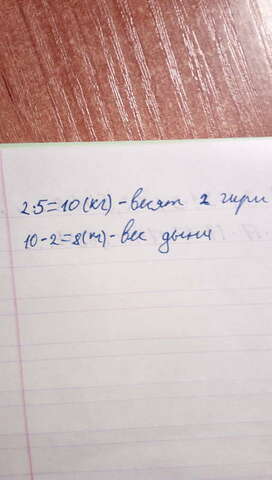 2·5=10(кг)-весят 2 гири
10-2=8(кг)-вес дыни